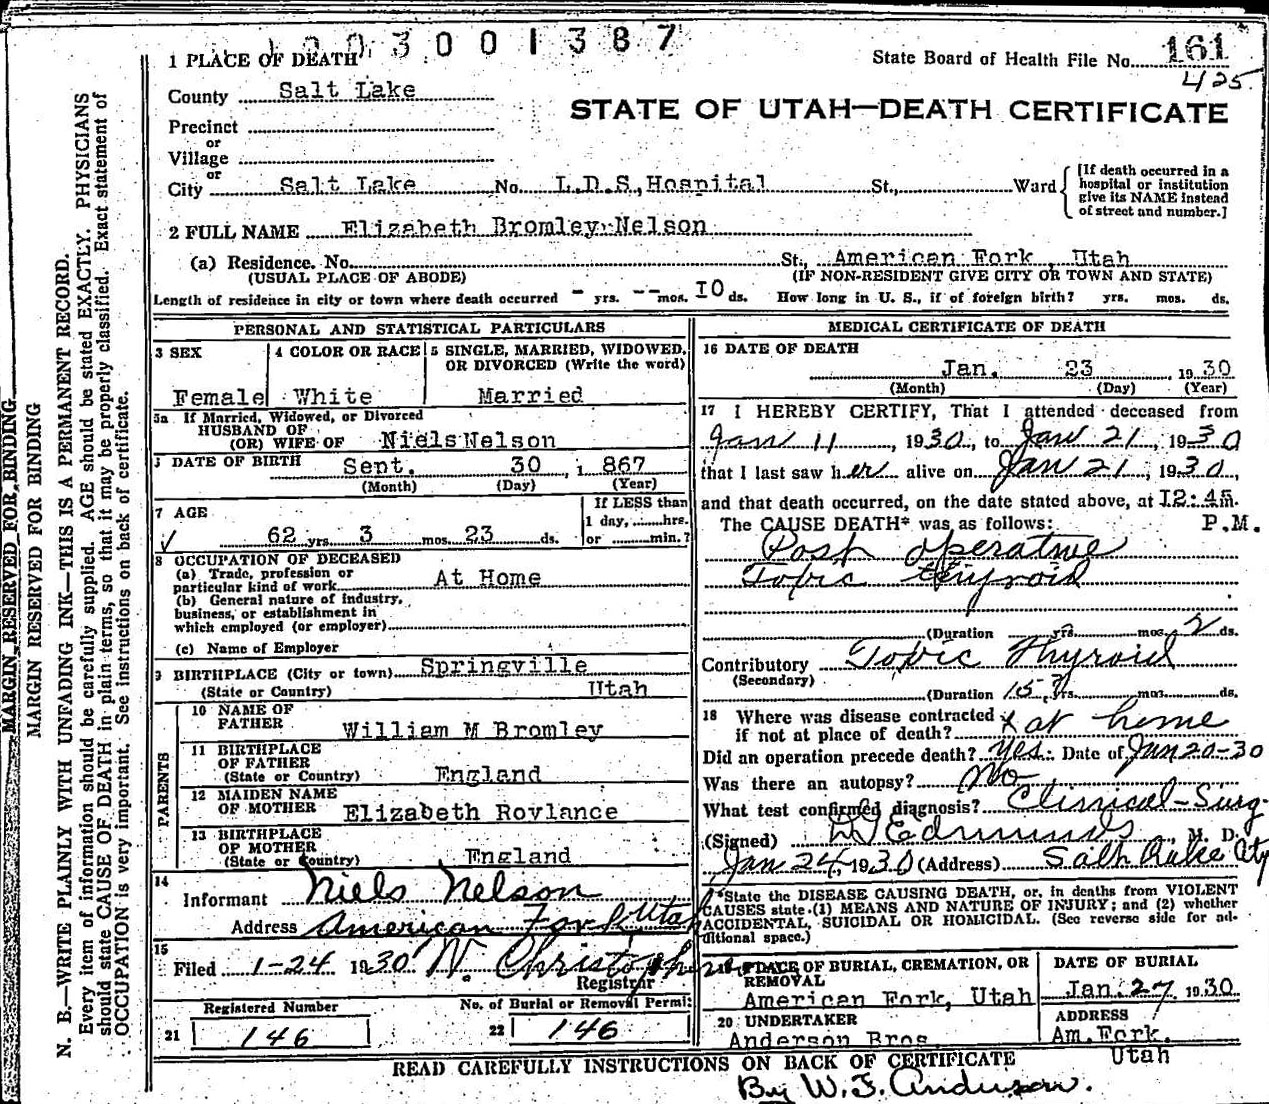 1003001387
1 PLACE OF DEATH
State Board of Health File No. 161
425
County Salt Lake
STATE OF UTAH—DEATH CERTIFICATE
Precinct
or
Village
or
City Salt Lake No. L.D.S. Hospital St., Ward
[If death occurred in a
hospital or institution
give its NAME instead
of street and number.]
2 FULL NAME Elizabeth Bromley Nelson
(a) Residence. No. St., American Fork, Utah
(USUAL PLACE OF ABODE) (IF NON-RESIDENT GIVE CITY OR TOWN AND STATE)
Length of residence in city or town where death occurred - yrs. -- mos. 10 ds. How long in U. S., if of foreign birth? yrs. mos. ds.
PERSONAL AND STATISTICAL PARTICULARS
3 SEX
Female
4 COLOR OR RACE
White
5 SINGLE, MARRIED, WIDOWED,
OR DIVORCED (Write the word)
Married
5a If Married, Widowed, or Divorced
HUSBAND OF
(OR) WIFE OF Niels Nelson
DATE OF BIRTH Sept. 30, 1867
(Month) (Day) (Year)
7 AGE
62 yrs. 3 mos. 23 ds.
If LESS than
1 day, hrs.
or min.?
8 OCCUPATION OF DECEASED
(a) Trade, profession or
particular kind of work At Home
(b) General nature of industry,
business, or establishment in
which employed (or employer)
(c) Name of Employer
9 BIRTHPLACE (City or town) Springville
(State or Country) Utah
PARENTS
10 NAME OF
FATHER William M Bromley
11 BIRTHPLACE
OF FATHER
(State or Country) England
12 MAIDEN NAME
OF MOTHER Elizabeth Roylance
13 BIRTHPLACE
OF MOTHER
(State or Country) England
14
Informant Niels Nelson
Address American Fork, Utah
15
Filed 1-24 1930 W. Christopherson
Registrar
Registered Number
21 146
No. of Burial or Removal Permit
22 146
MEDICAL CERTIFICATE OF DEATH
16 DATE OF DEATH
Jan. 23 1930
(Month) (Day) (Year)
17 I HEREBY CERTIFY, That I attended deceased from
Jan 11, 1930, to Jan 21, 1930
that I last saw her alive on Jan 21, 1930,
and that death occurred, on the date stated above, at 12:45
The CAUSE DEATH* was as follows: P.M.
Post operative
Toxic thyroid
(Duration yrs. mos. 2 ds.
Contributory Toxic Thyroid
(Secondary)
(Duration 15 yrs. mos. ds.
18 Where was disease contracted
if not at place of death? at home
Did an operation precede death? Yes. Date of Jan 20-30
Was there an autopsy? No
What test confirmed diagnosis? Clinical-Surg-
(Signed) Edmunds, M. D.
Jan 24, 1930 (Address) Salt Lake City
*State the DISEASE CAUSING DEATH, or, in deaths from VIOLENT
CAUSES state (1) MEANS AND NATURE OF INJURY; and (2) whether
ACCIDENTAL, SUICIDAL OR HOMICIDAL. (See reverse side for ad-
ditional space.)
PLACE OF BURIAL, CREMATION, OR
REMOVAL
American Fork, Utah
DATE OF BURIAL
Jan. 27 1930
20 UNDERTAKER
Anderson Bros
ADDRESS
Am. Fork.
Utah
READ CAREFULLY INSTRUCTIONS ON BACK OF CERTIFICATE
By W. J. Anderson.
MARGIN RESERVED FOR BINDING
MARGIN RESERVED FOR BINDING
N. B.—WRITE PLAINLY WITH UNFADING INK—THIS IS A PERMANENT RECORD.
Every item of information should be carefully supplied. AGE should be stated EXACTLY. PHYSICIANS
should state CAUSE OF DEATH in plain terms, so that it may be properly classified. Exact statement of
OCCUPATION is very important. See instructions on back of certificate.